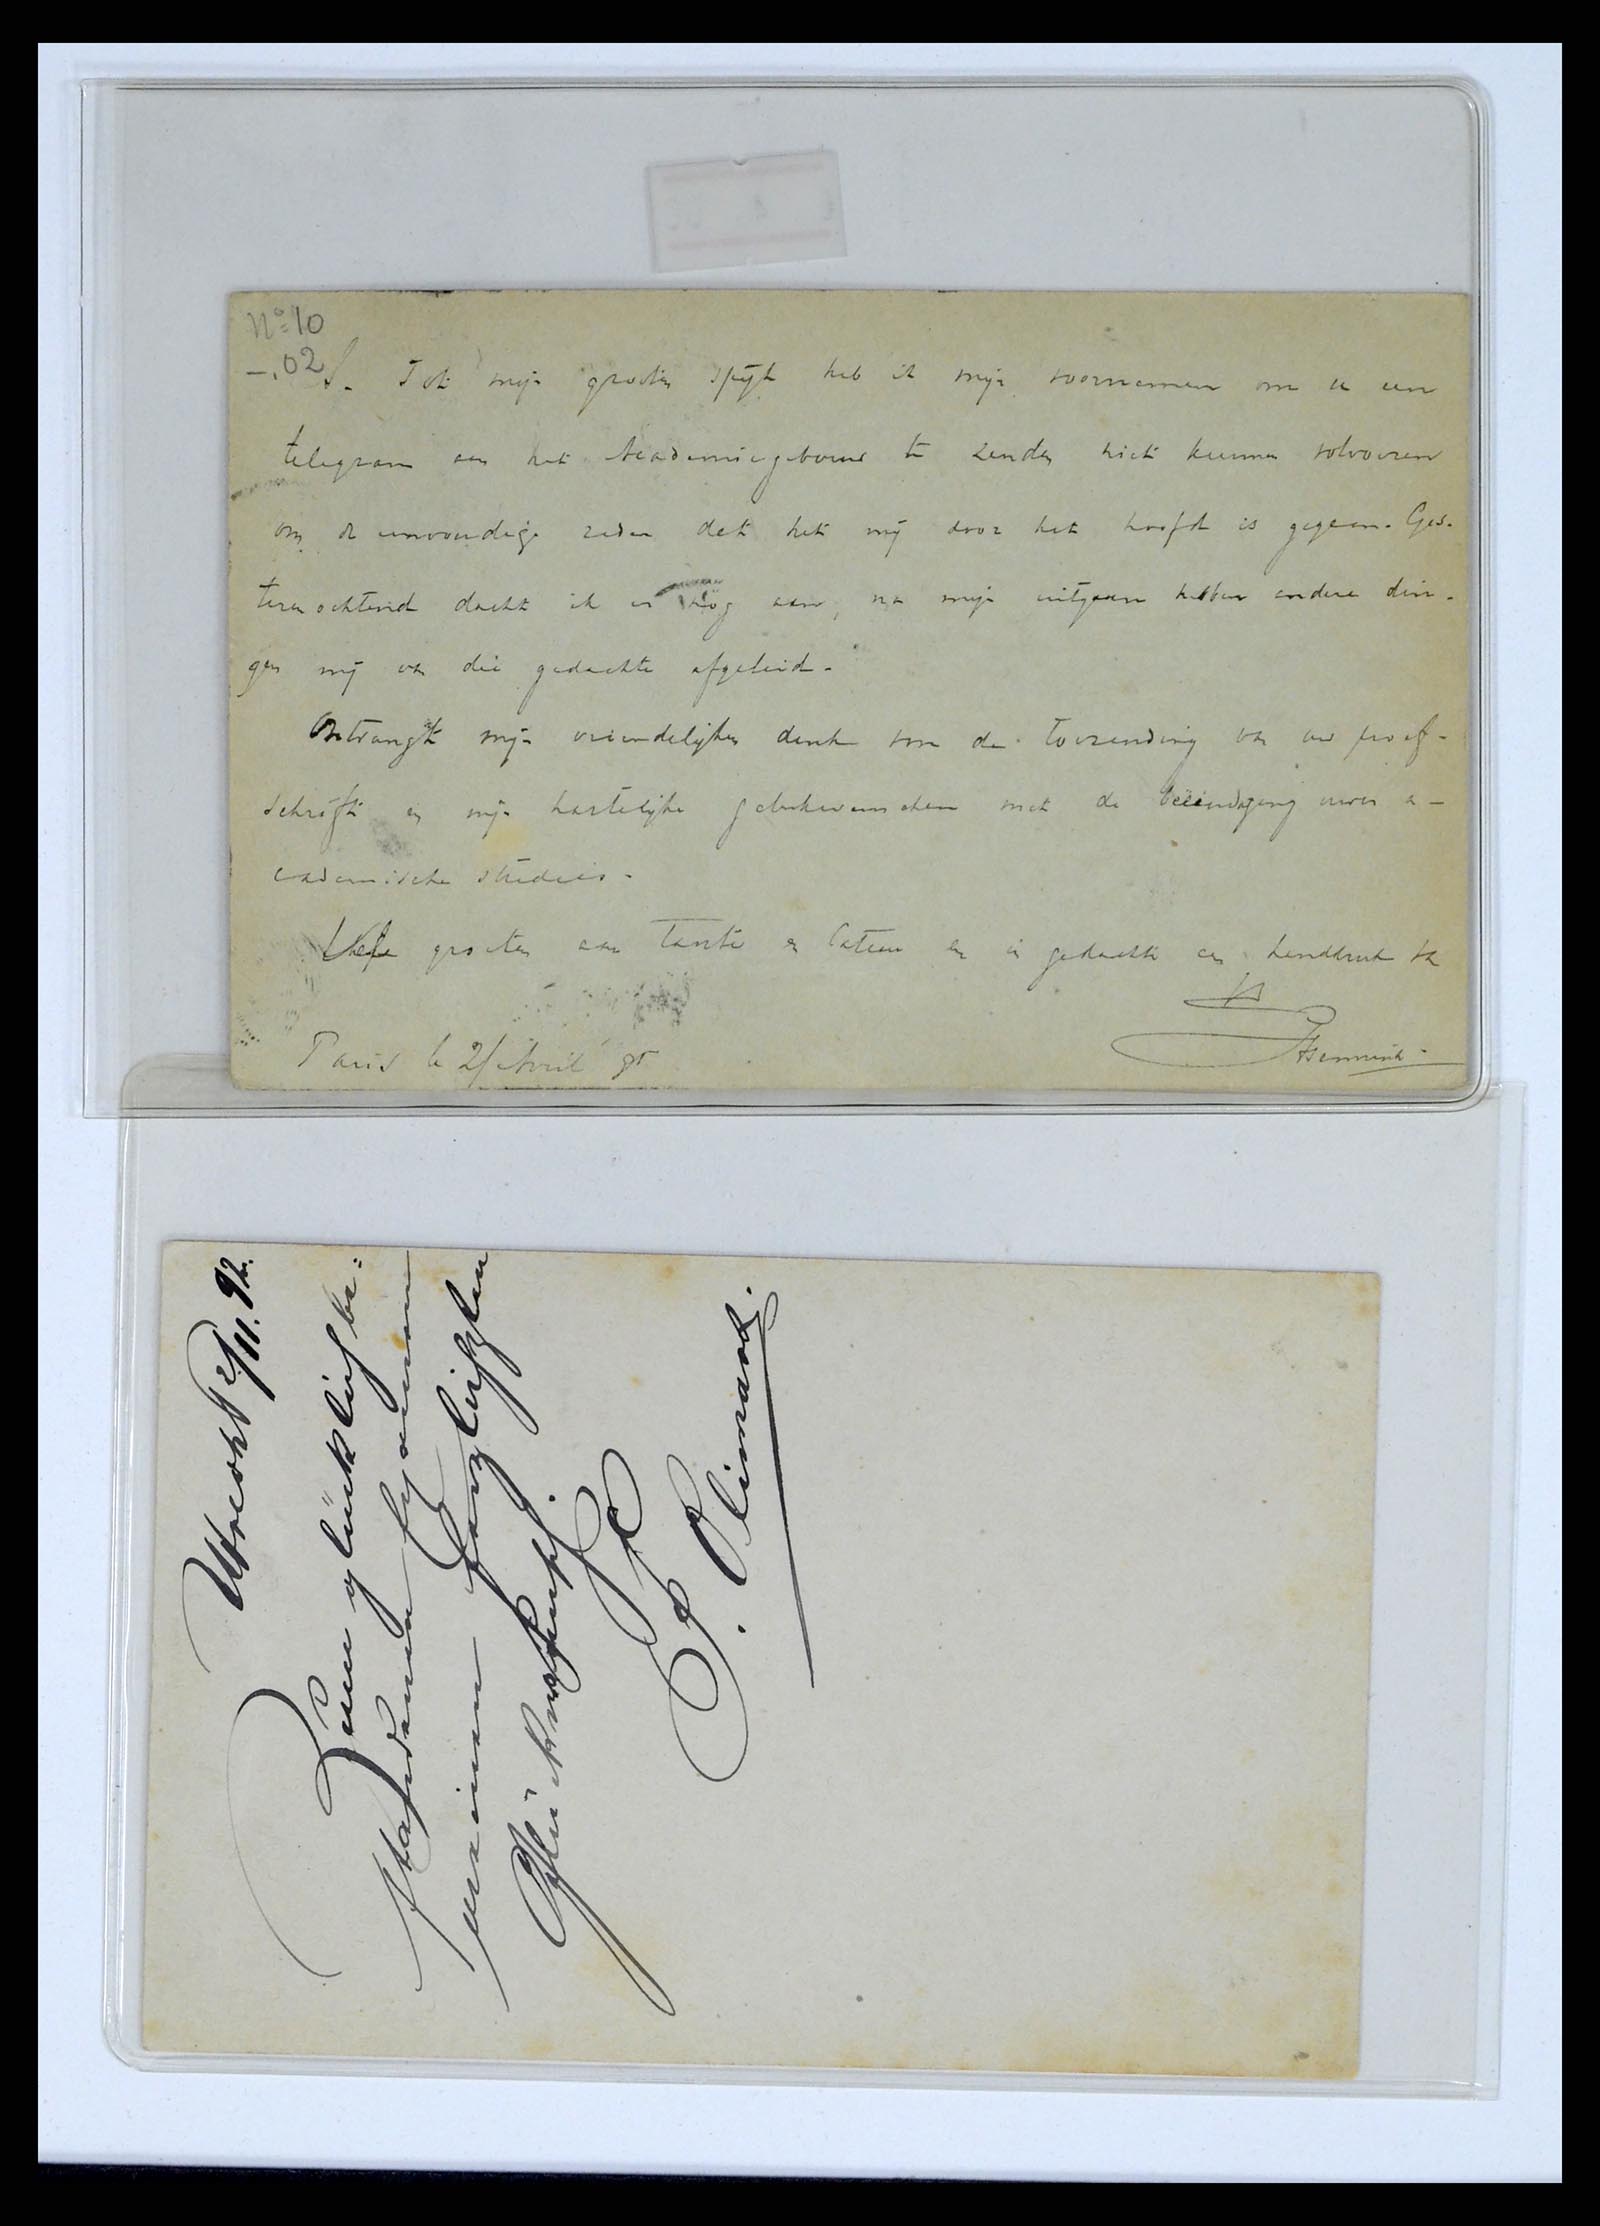 No 10
-.02
S. Tot mijn grooten spijt heb ik mijn voornemen om u een
telegram aan het Academiegebouw te zenden niet kunnen volvoeren
om de eenvoudige reden dat het mij door het hoofd is gegaan. Gis-
terenochtend dacht ik er nog aan, na mijn uitgaan hebben andere din-
gen mij van die gedachte afgeleid.
Ontvangt mijn vriendelijken dank voor de toezending van uw proef-
schrift en mijn hartelijke gelukwenschen met de beëindiging uwer a-
cademische studies.
Vele groeten aan Tante en Catrien en in gedachte een handdruk van
Paris le 21 Avril 95
Utrecht 2/11. 92.
Zum glücklich be-
standenen Examen
meinen herzlichsten
Glückwunsch.